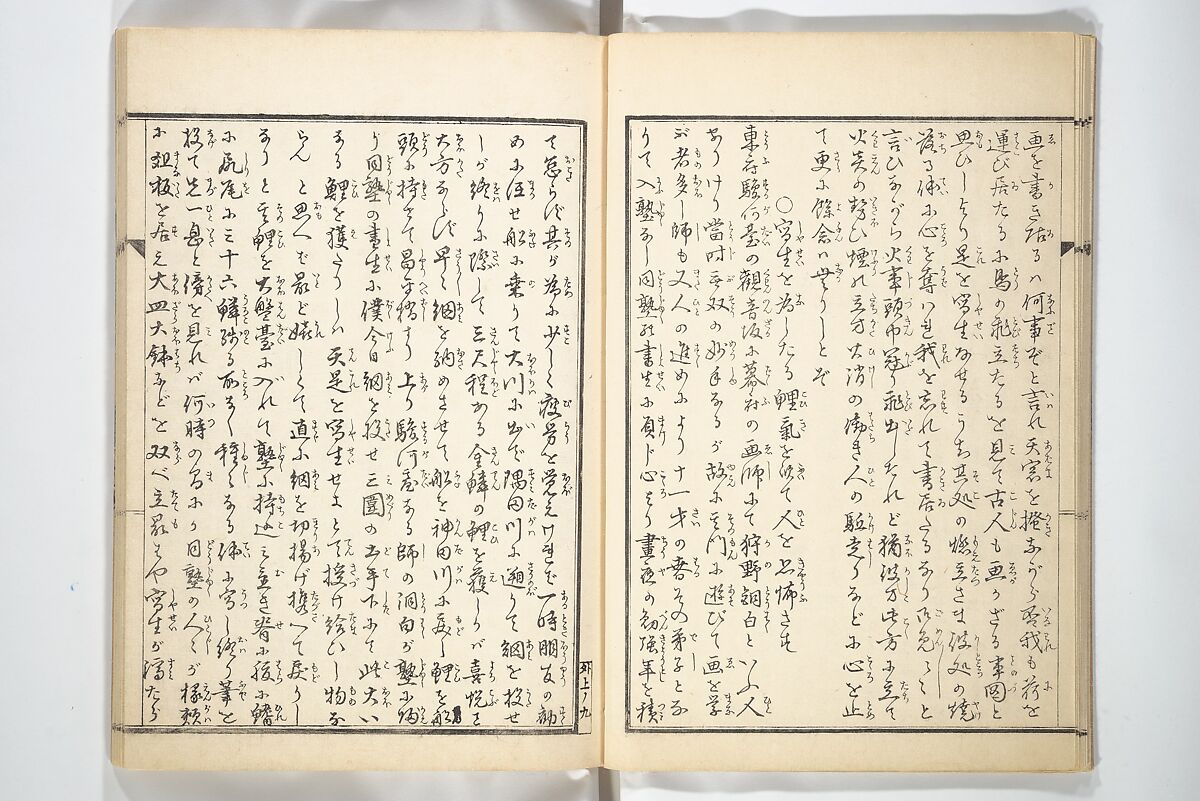 画を書き居るハ何事ぞと言れ天窓を掻ながら吾我も荷を
運び居たるに鳥の飛立たるを見て古人も画かざる事図と
思ひしより足を写生なせるうち其処の燃立さま彼処の焼
落る体に心を奪ハれ我を忘れて書居たるなり御免々々と
言ひながら火事頭巾冠り飛出したれど猶彼方此方に立て
火炎の勢ひ煙の立方火消の働き人の駈走るなどに心を止
て更に餘念ハ無りしとぞ
○写生を為したる鯉氣を吹て人を恐怖さす
東府駿河臺の觀音坂に幕府の画師にて狩野洞白といふ人
ありけり當時無双の妙手なるが故に其門に遊びて画を学
ぶ者多し師も又人の進めにより十一才の春その弟子とな
りて入塾なし同塾の書生に心をより晝夜の勉強年を積
て怠らず其が為に少しく疲労を覚えければ一時朋友の勧
めに任せ船に乗りて大川に出で隅田川に遡りて網を投せ
しが終りに際して三尺程ある金鱗の鯉を獲しかバ喜悦を
大方ならず早く網を納めさせて船を神田川に戻し鯉を船
頭に持せて昌平橋より上り駿河臺なる師の洞白が塾に帰
り同塾の書生に僕今日網を投せ三圍の土手下にて此大い
なる鯉を獲たりしハ天是を写生せよとて授け給ひし物な
らんと思へば最ど嬉しくて直に網を切揚げ携へて戻りし
なりと其鯉を大盤臺に入れて塾に持込ミ脊に腹に鰭
に尻尾に三十六鱗残る所なく種々なる体に写し終り筆を
投て先一息と傍を見れバ何時の間にか同塾の人々が椽頬
に俎板を居え大皿大鉢などを双べ立最はや写生が済たら
外上ノ九